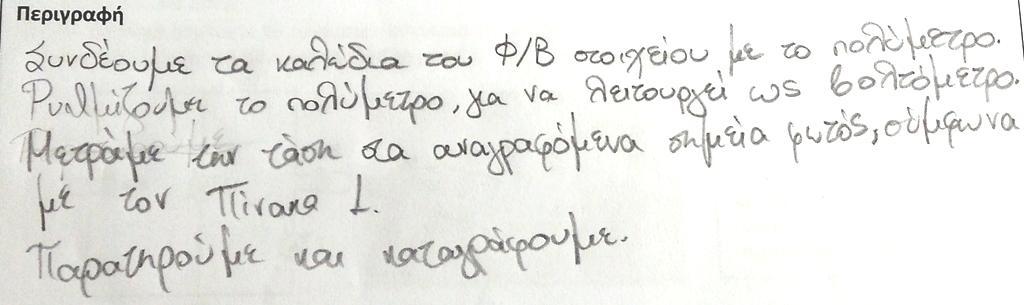 Περιγραφή
Συνδέουμε τα καλώδια του Φ/Β στοιχείου με το πολύμετρο.
Ρυθμίζουμε το πολύμετρο, για να λειτουργεί ως βολτόμετρο.
Μετράμε την τάση στα αναγραφόμενα σημεία φωτός, σύμφωνα
με τον Πίνακα 1.
Παρατηρούμε και καταγράφουμε.